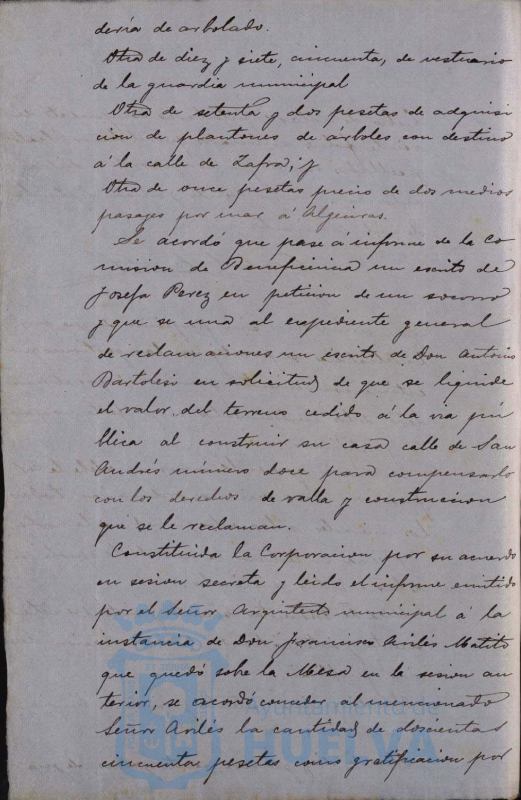 dería de arbolado.
Otra de diez y siete, cincuenta, de vestuario
de la guardia municipal
Otra de setenta y dos pesetas de adquisi
cion de plantones de árboles con destino
á la calle de Zafra; y
Otra de once pesetas precio de dos medios
pasages por mar á Algeciras.
Se acordó que pase á informe de la Co
mision de Beneficencia un escrito de
Josefa Perez en peticion de un socorro
y que se una al expediente general
de reclamaciones un escrito de Don Antonio
en solicitud de que se liquide
el valor del terreno cedido á la via pú
blica al construir su casa calle de San
Andrés número doce para compensarlo
con los derechos de valla y construccion
que se le reclaman.
Constituida la Corporacion por su acuerdo
en sesion secreta y leido el informe emitido
por el Señor Arquitecto municipal á la
instancia de Don Francisco Avilés Matito
que quedó sobre la Mesa en la sesion an
terior, se acordó conceder al mencionado
Señor Avilés la cantidad de doscientas
cincuenta pesetas como gratificacion por
Ayuntamiento de
HUELVA